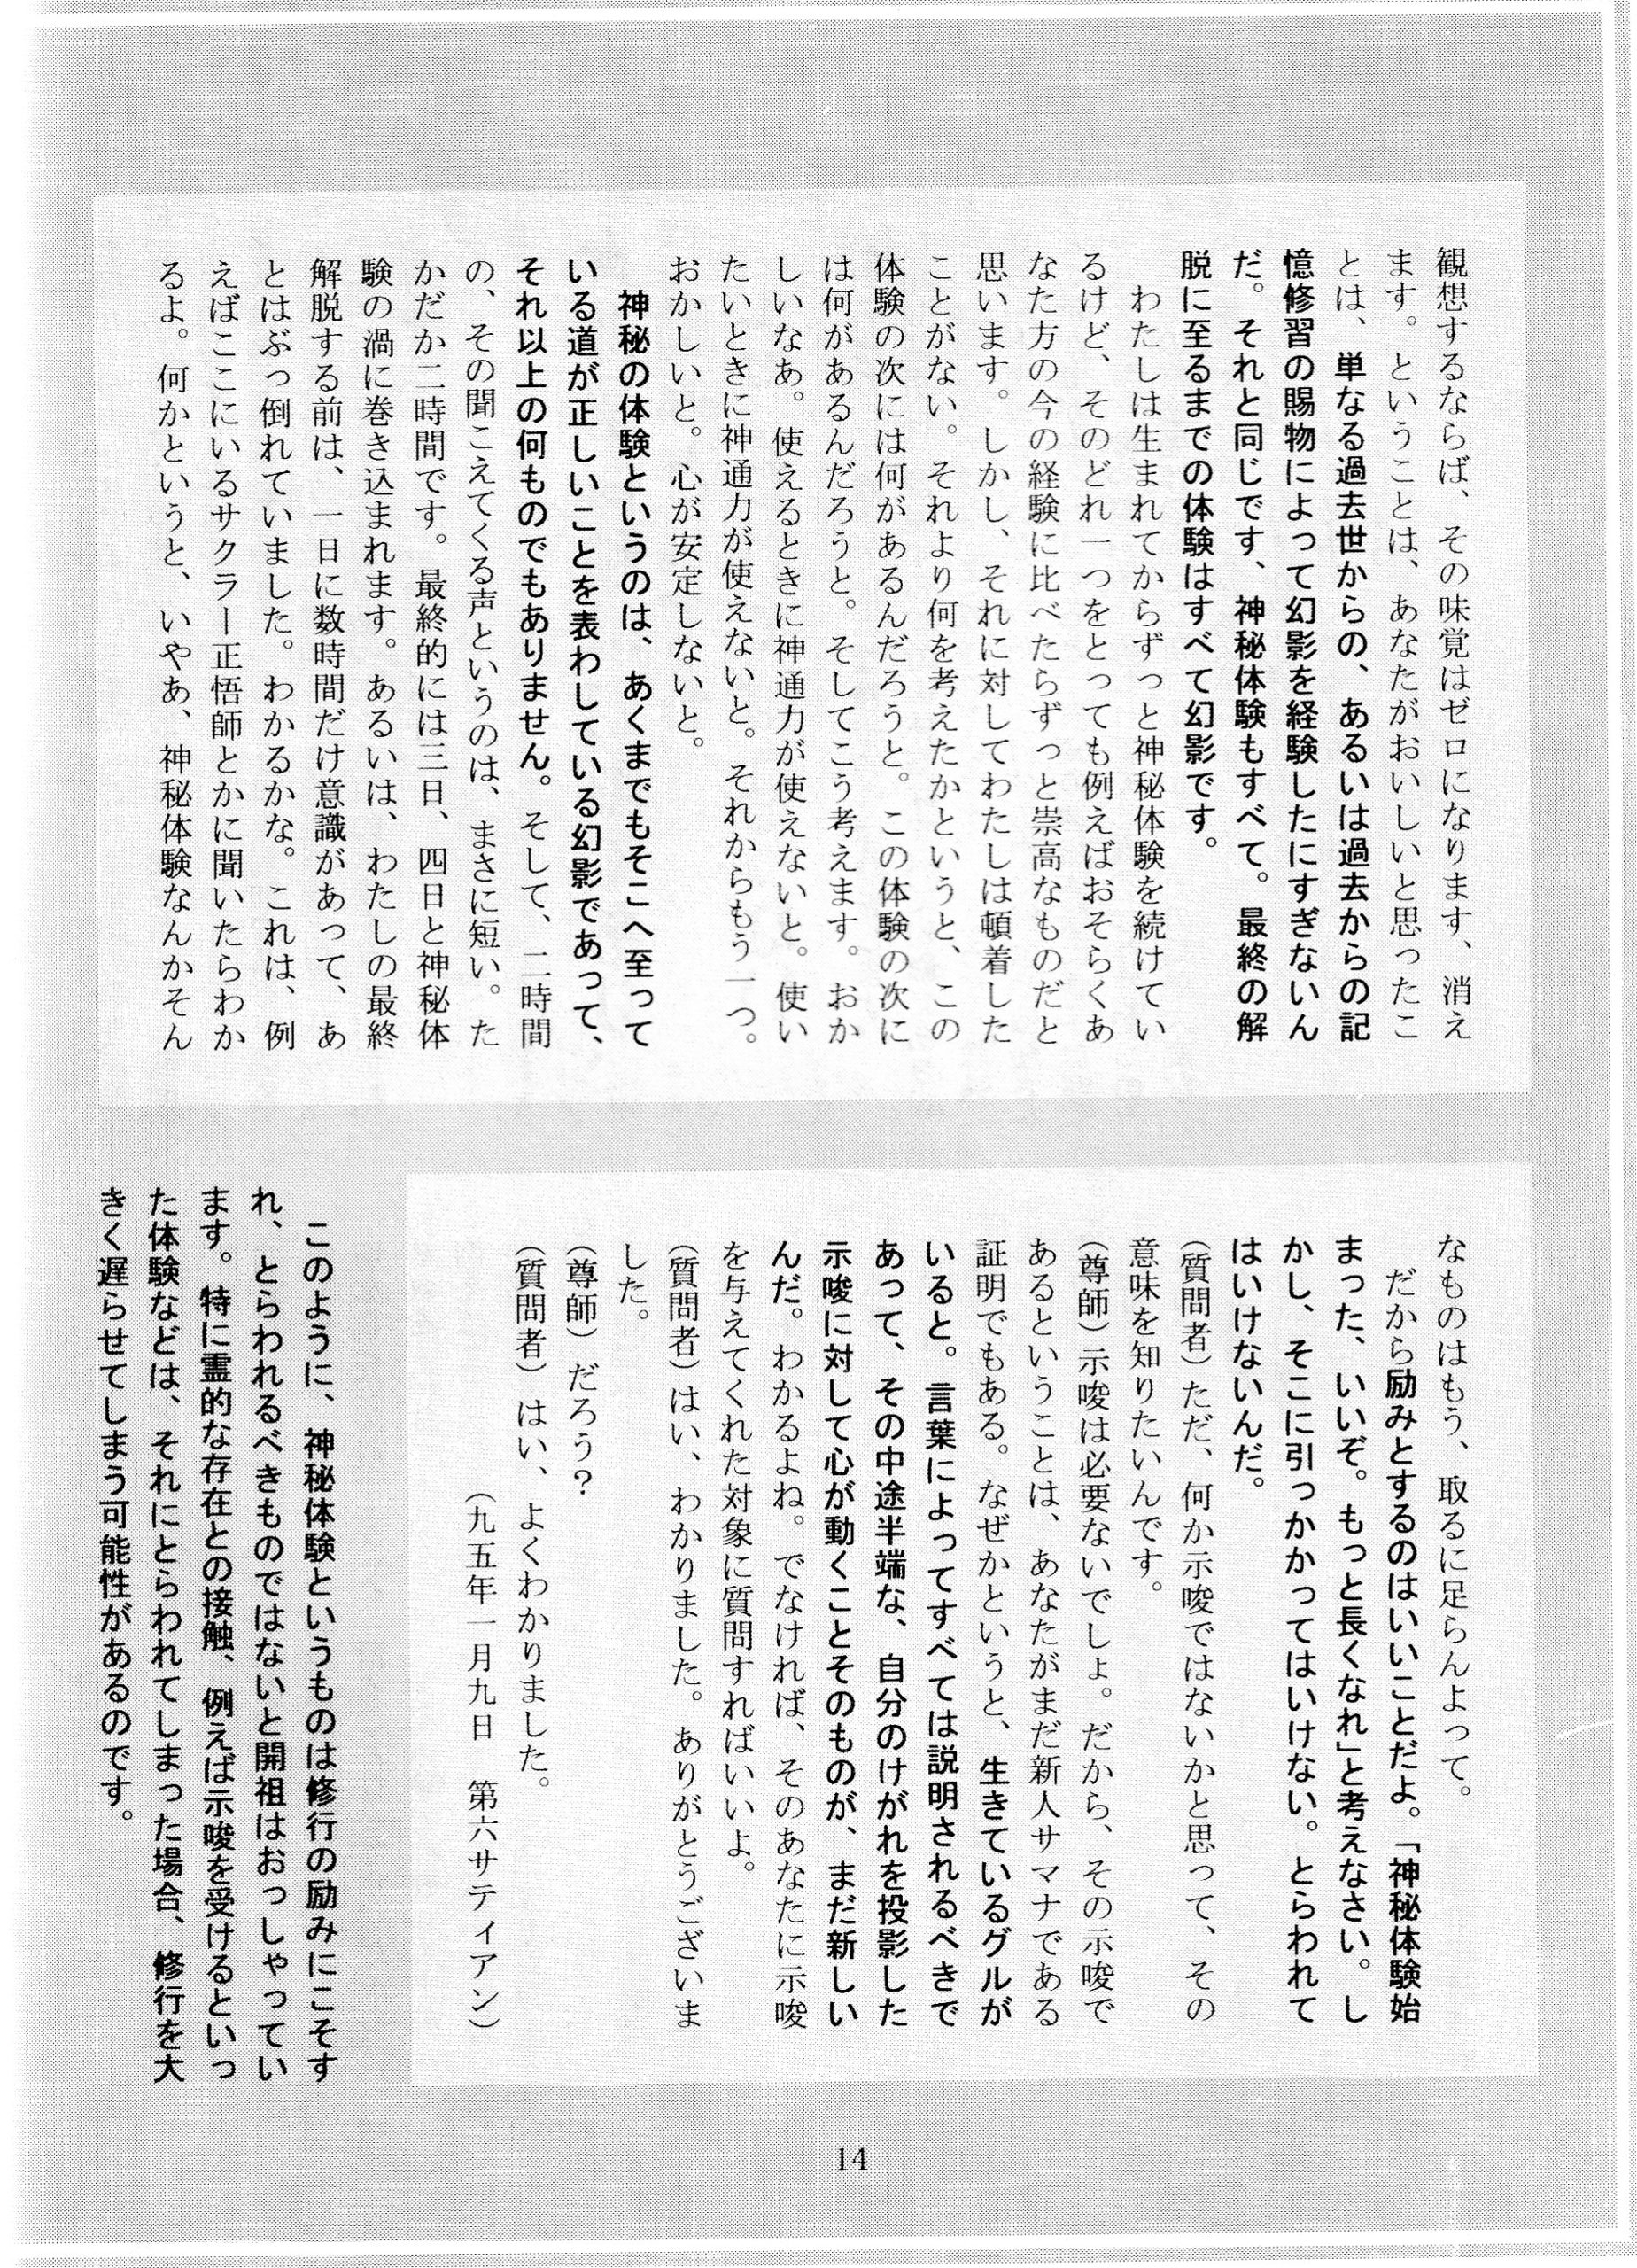 観想するならば、その味覚はゼロになります、消え
ます。ということは、あなたがおいしいと思ったこ
とは、単なる過去世からの、あるいは過去からの記
憶修習の賜物によって幻影を経験したにすぎないん
だ。それと同じです、神秘体験もすべて。最終の解
脱に至るまでの体験はすべて幻影です。
わたしは生まれてからずっと神秘体験を続けてい
るけど、そのどれ一つをとっても例えばおそらくあ
なた方の今の経験に比べたらずっと崇高なものだと
思います。しかし、それに対してわたしは頓着した
ことがない。それより何を考えたかというと、この
体験の次には何があるんだろうと。この体験の次に
は何があるんだろうと。そしてこう考えます。おか
しいなあ。使えるときに神通力が使えないと。使い
たいときに神通力が使えないと。それからもう一つ。
おかしいと。心が安定しないと。
神秘の体験というのは、あくまでもそこへ至って
いる道が正しいことを表わしている幻影であって、
それ以上の何ものでもありません。そして、二時間
の、その聞こえてくる声というのは、まさに短い。た
かだか二時間です。最終的には三日、四日と神秘体
験の渦に巻き込まれます。あるいは、わたしの最終
解脱する前は、一日に数時間だけ意識があって、あ
とはぶっ倒れていました。わかるかな。これは、例
えばここにいるサクラー正悟師とかに聞いたらわか
るよ。何かというと、いやあ、神秘体験なんかそん
なものはもう、取るに足らんよって。
だから励みとするのはいいことだよ。「神秘体験始
まった、いいぞ。もっと長くなれ」と考えなさい。し
かし、そこに引っかかってはいけない。とらわれて
はいけないんだ。
（質問者）ただ、何か示唆ではないかと思って、その
意味を知りたいんです。
（尊師）示唆は必要ないでしょ。だから、その示唆で
あるということは、あなたがまだ新人サマナである
証明でもある。なぜかというと、生きているグルが
いると。言葉によってすべては説明されるべきで
あって、その中途半端な、自分のけがれを投影した
示唆に対して心が動くことそのものが、まだ新しい
んだ。わかるよね。でなければ、そのあなたに示唆
を与えてくれた対象に質問すればいいよ。
（質問者）はい、わかりました。ありがとうございま
した。
（尊師）だろう？
（質問者）はい、よくわかりました。
（九五年一月九日　第六サティアン）
このように、神秘体験というものは修行の励みにこそす
れ、とらわれるべきものではないと開祖はおっしゃってい
ます。特に霊的な存在との接触、例えば示唆を受けるといっ
た体験などは、それにとらわれてしまった場合、修行を大
きく遅らせてしまう可能性があるのです。
14